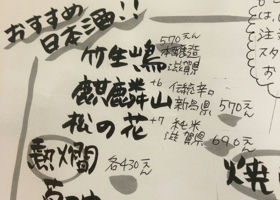 おすすめ
日本酒!!
竹生嶋 570えん 本醸造 滋賀県
麒麟山 +6 伝統辛口 新潟県 570えん
松の花 +7 純米 滋賀県 690えん
熱燗 各430えん
焼
は
注
スタ
お